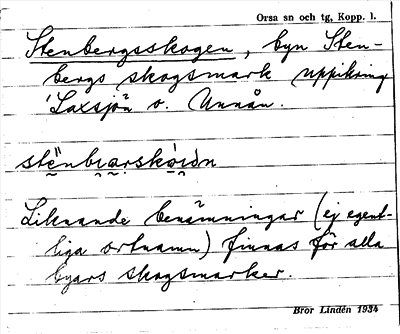 Orsa sn och tg, Kopp. l.
Stenbergsskogen, byn Sten-
bergs skogsmark uppikring
Laxsjön o. Unnån.
Liknande benämningar (ej egent-
liga ortnamn) finnas för alla
byars skogsmarker.
Bror Lindén 1934